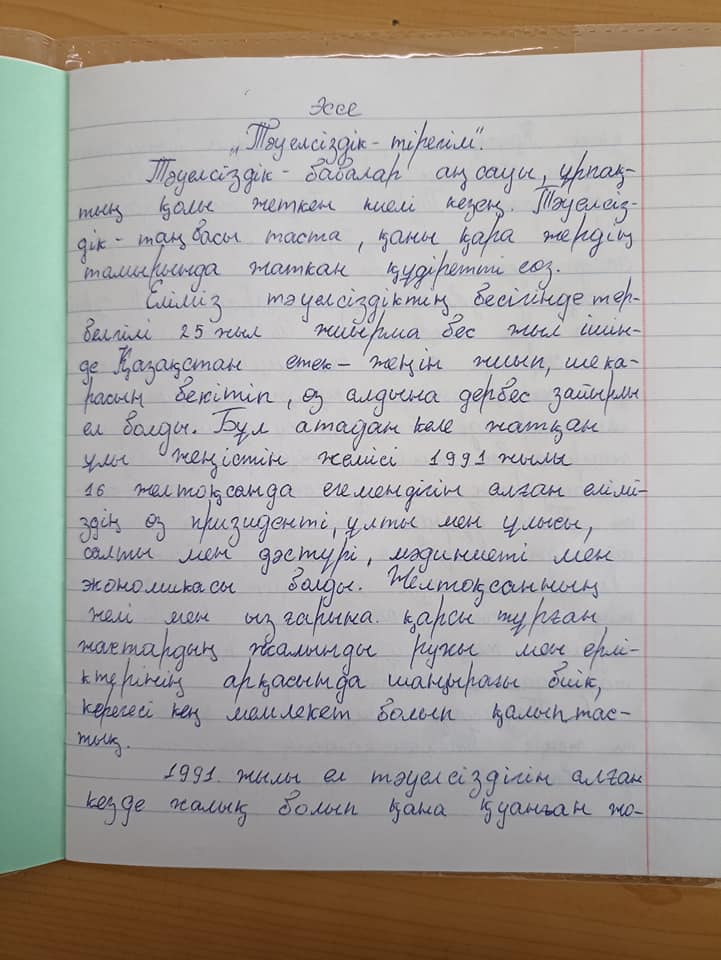 Эссе
„Тәуелсіздік - тірегім".
Тәуелсіздік - бабалар аңсауы, ұрпақ-
тың қолы жеткен киелі кезең. Тәуелсіз-
дік - таңбасы таста, қаны қара жердің
тамырында жатқан құдіретті сөз.
Еліміз тәуелсіздіктің бесігінде тер-
белгілі 25 жыл жиырма бес жыл ішін-
де Қазақстан етек - жеңін жиып, шека-
расын бекітіп, өз алдына дербес зайырлы
ел болды. Бұл атадан келе жатқан
ұлы жеңістін желісі 1991 жылы
16 желтоқсанда егемендігін алған елімі-
здің өз призиденті, ұлты мен ұлысы,
салты мен дәстүрі, мәдиниеті мен
экономикасы болды. Желтоқсанның
желі мен ызғарына қарсы тұрған
жастардың жалынды рухы мен ерлі-
ктерінің арқасында шаңырағы биік,
керегесі кең мемлекет болып қалыптас-
тық.
1991 жылы ел тәуелсіздігін алған
кезде халық болып қана қуанған жо-